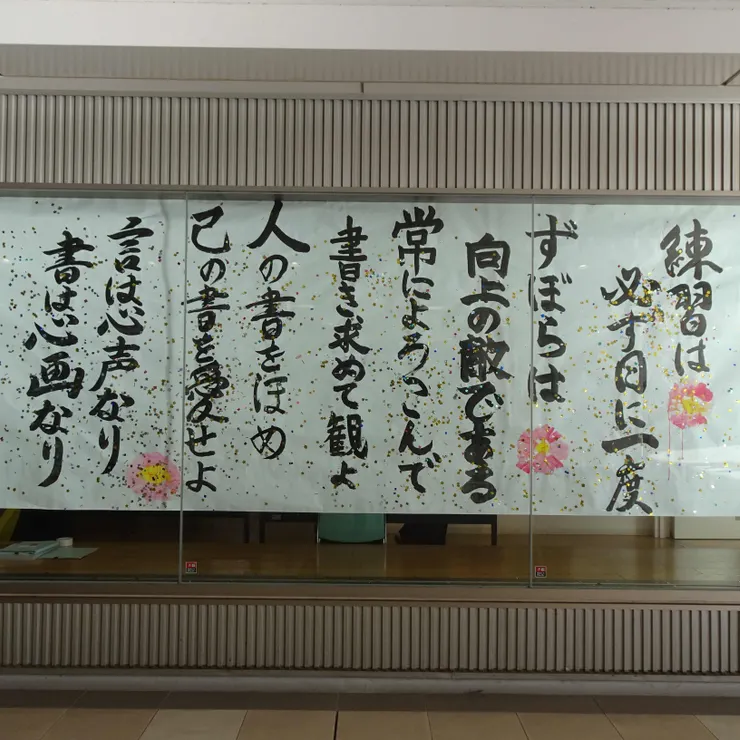 練習は
必す日に一度
ずぼらは
向上の敵である
常によろこんで
書き求めて観よ
人の書をほめ
己の書を愛せよ
言は心声なり
書は心画なり